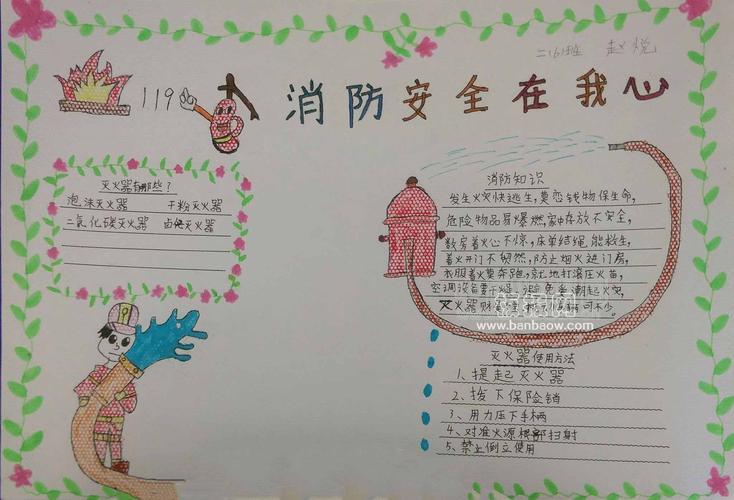 二(6)班 赵悦
119
消防安全在我心
灭火器有哪些?
泡沫灭火器 干粉灭火器
二氧化碳灭火器 灭火器
消防知识
发生火灾快逃生,莫恋钱物保生命,
危险物品易爆燃,家中存放不安全,
数房着火心不惊,床单结绳能救生,
着火开门不贸然,防止烟火进门房,
衣服着火莫奔跑,就地打滚压火苗,
空调设备要干燥,避免受潮起火灾,
灭火器 可不少。
www.banbaow.com
灭火器使用方法
1、提起灭火器
2、拨下保险销
3、用力压下手柄
4、对准火源根部扫射
5、禁止倒立使用